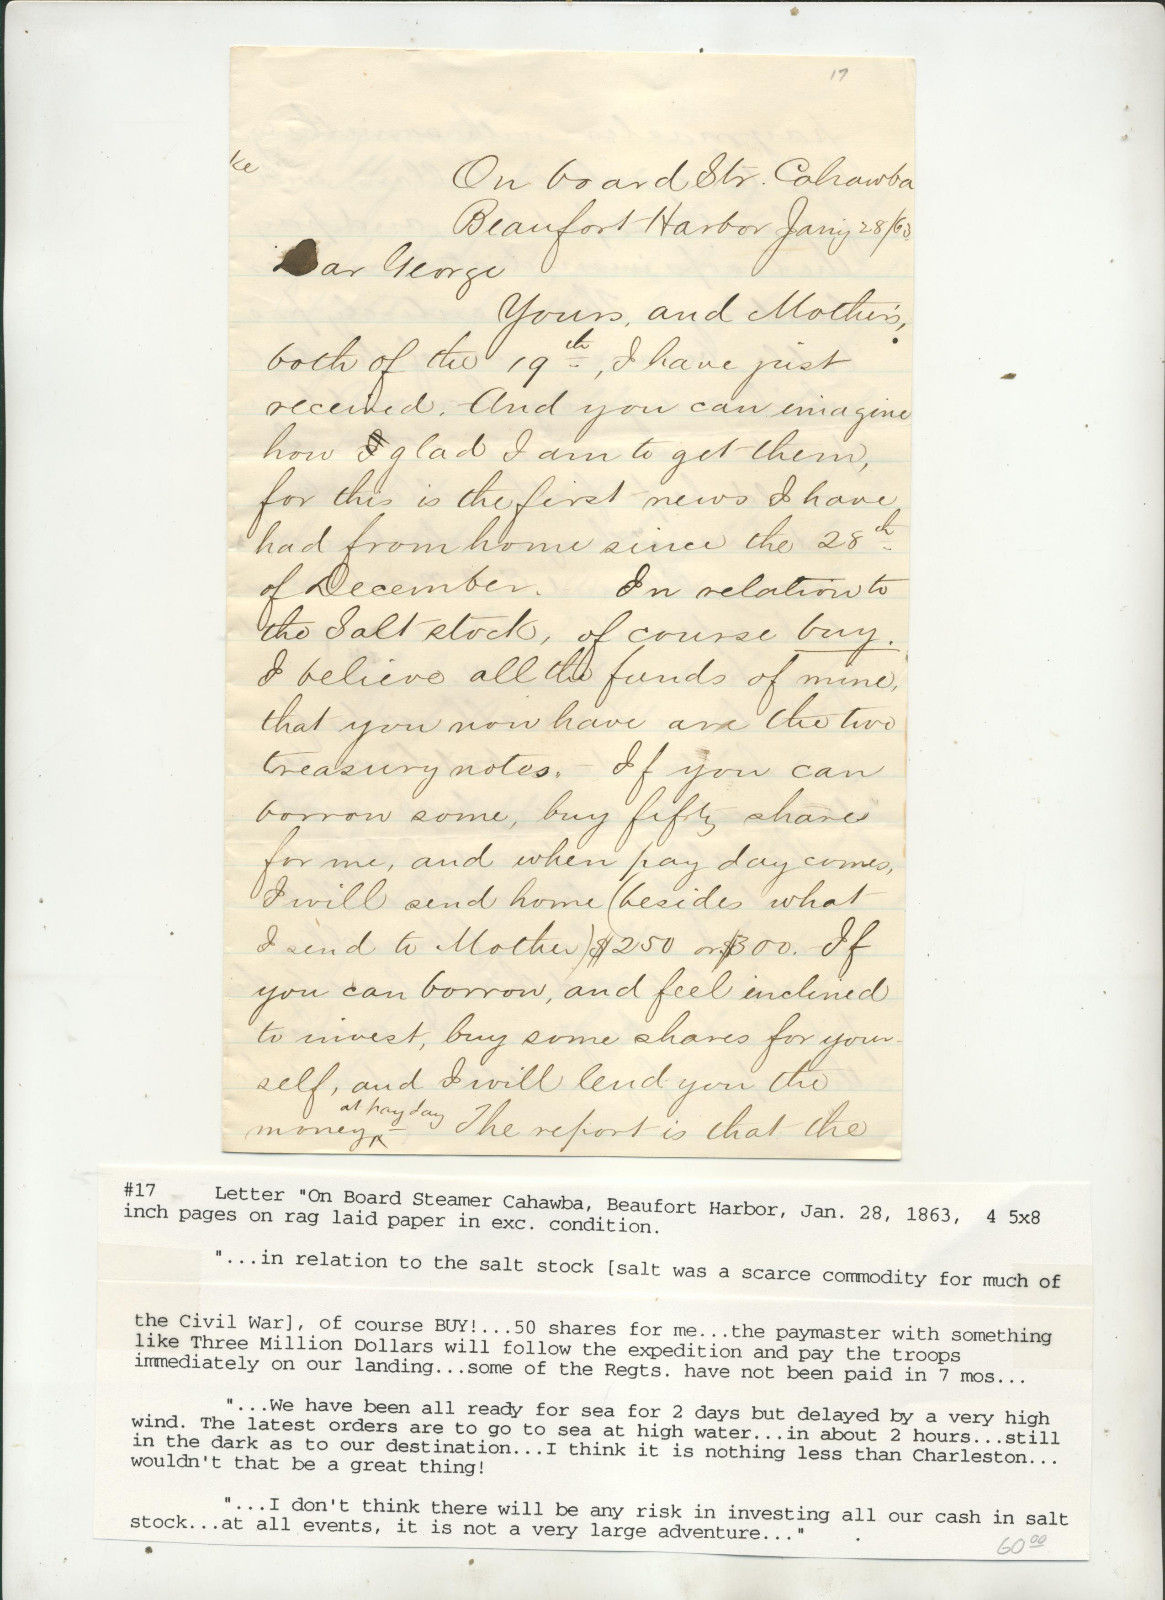 17
ke
On board Str. Cahawba
Beaufort Harbor Jany 28/63
Dear George
Yours, and Mother's,
both of the 19th, I have just
received. And you can imagine
how I glad I am to get them,
for this is the first news I have
had from home since the 28th
of December. In relation to
the Salt stock, of course buy.
I believe all the funds of mine,
that you now have are the two
treasury notes. If you can
borrow some, buy fifty shares
for me, and when pay day comes,
I will send home (besides what
I send to Mother) $250 or $300. If
you can borrow, and feel inclined
to invest, buy some shares for your-
self, and I will lend you the
at pay day
money The report is that the
#17 Letter "On Board Steamer Cahawba, Beaufort Harbor, Jan. 28, 1863, 4 5x8
inch pages on rag laid paper in exc. condition.
"...in relation to the salt stock [salt was a scarce commodity for much of
the Civil War], of course BUY!...50 shares for me...the paymaster with something
like Three Million Dollars will follow the expedition and pay the troops
immediately on our landing...some of the Regts. have not been paid in 7 mos...
"...We have been all ready for sea for 2 days but delayed by a very high
wind. The latest orders are to go to sea at high water...in about 2 hours...still
in the dark as to our destination...I think it is nothing less than Charleston...
wouldn't that be a great thing!
"...I don't think there will be any risk in investing all our cash in salt
stock...at all events, it is not a very large adventure..."
60 00